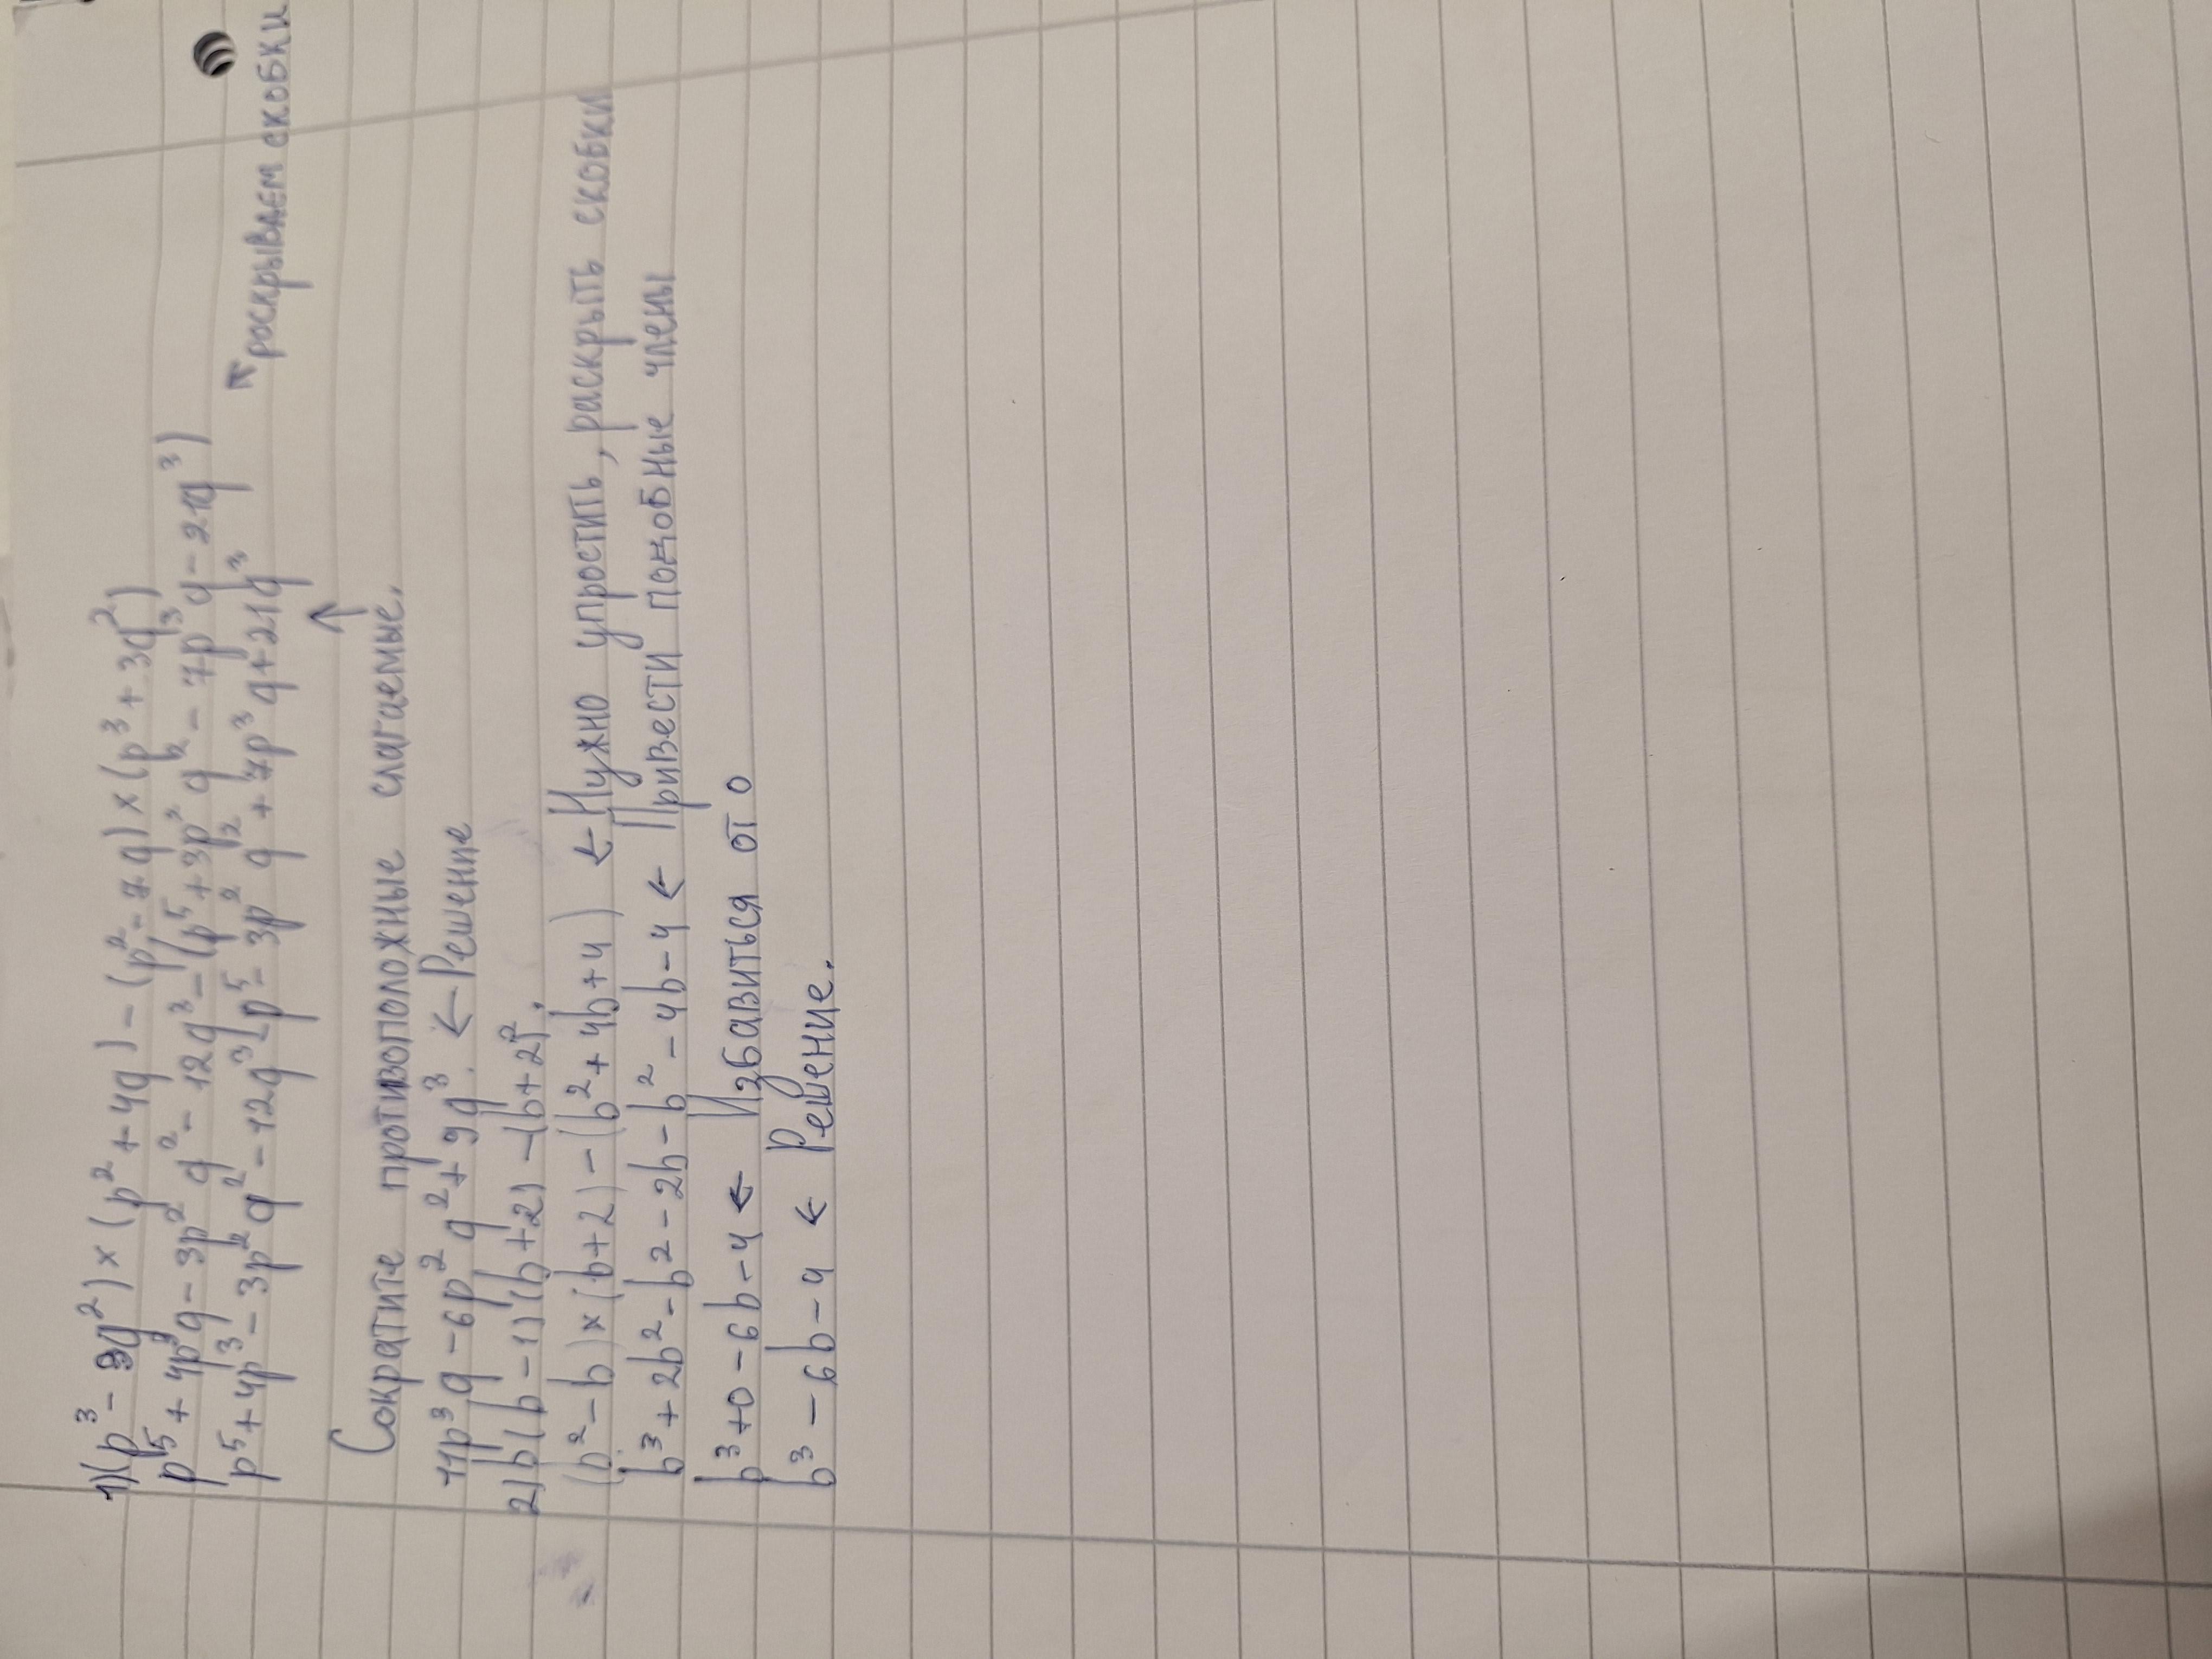 1)(p³-3q²)×(p²+4q)-(p²-7q)×(p³+3q²)
p⁵+4p³q-3p²q²-12q³-(p⁵+3p²q²-7p³q-21q³)
p⁵+4p³-3p²q²-12q³-p⁵-3p²q²+7p³q+21q³
↖роскрываем скобки
↑
Сократите противоположные слагаемые.
11p³q-6p²q²+9q³. ←Решение
2)b(b-1)(b+2)-(b+2)².
(b²-b)×(b+2)-(b²+4b+4) ←Нужно упростить, раскрыть скобки
b³+2b²-b²-2b-b²-4b-4← Привести подобные члены
b³+0-6b-4← Избавиться от 0
b³-6b-4← Решение.